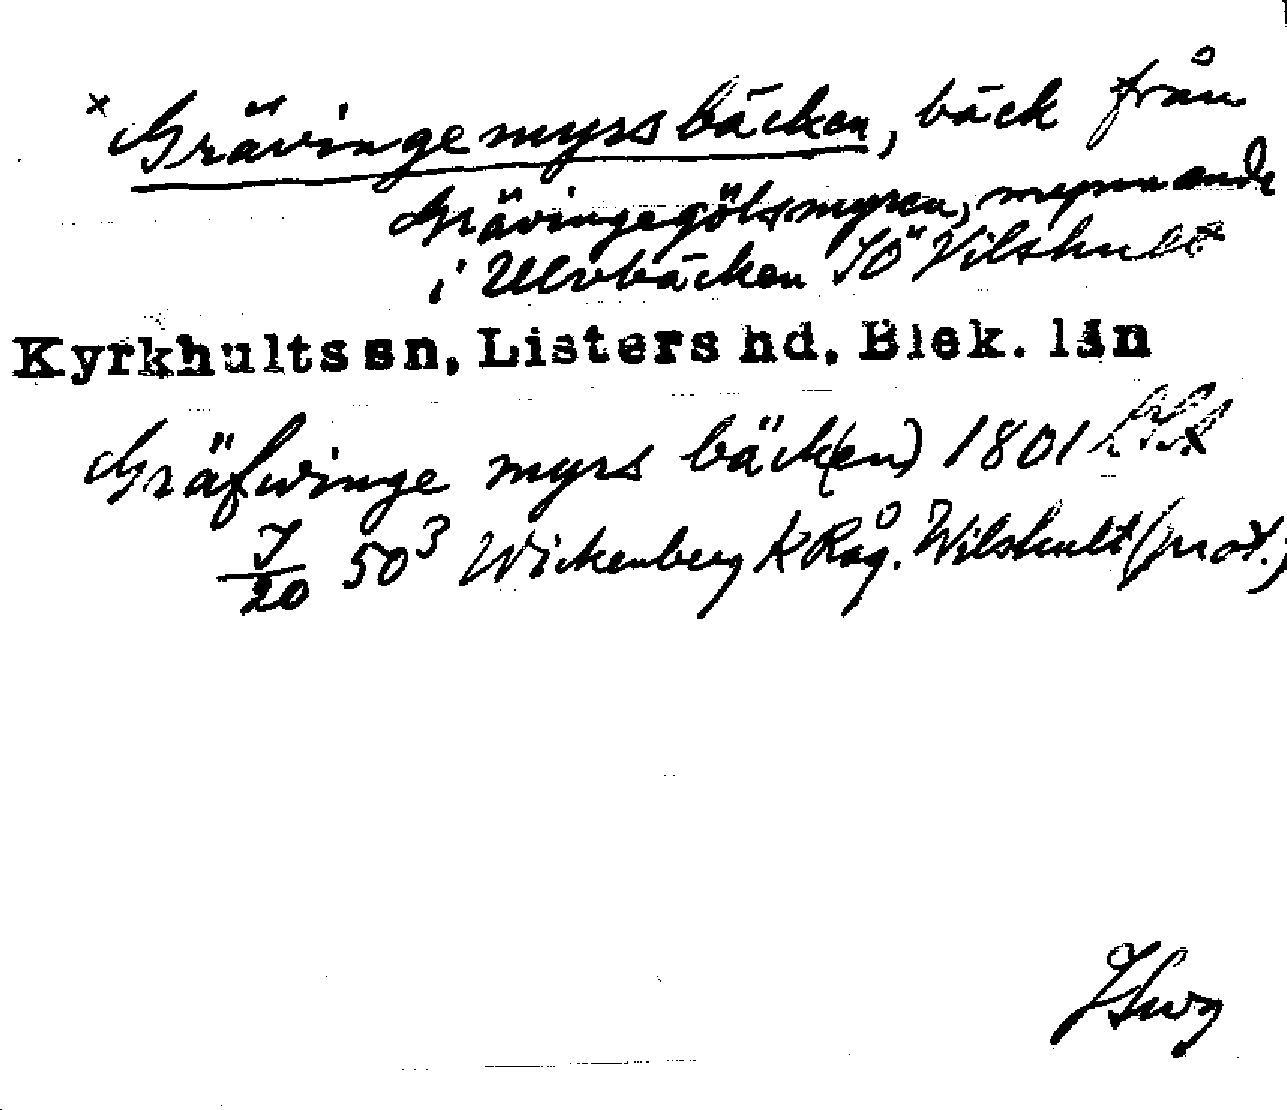 × Grävingemyrsbäcken, bäck från
Grävingegölsmyren, mynnande
i Ulvbäcken SÖ Vilshult
Kyrkhults sn, Listers hd, Blek. län
Gräfwinge myrs bäck(en) 1801 LSA
J/20 50³ Wickenberg K Råg. Wilshult (prot.)